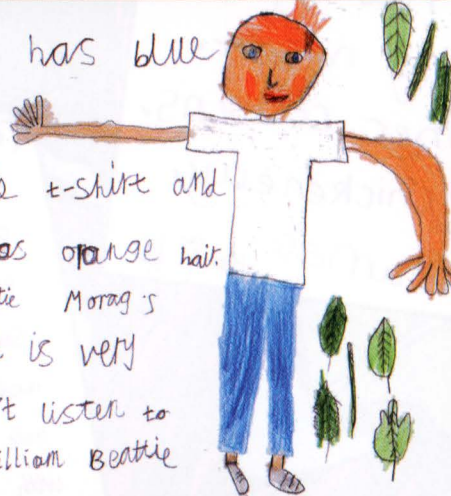 has blue
t-shirt and
orange hair.
Morag's
is very
listen to
Beattie